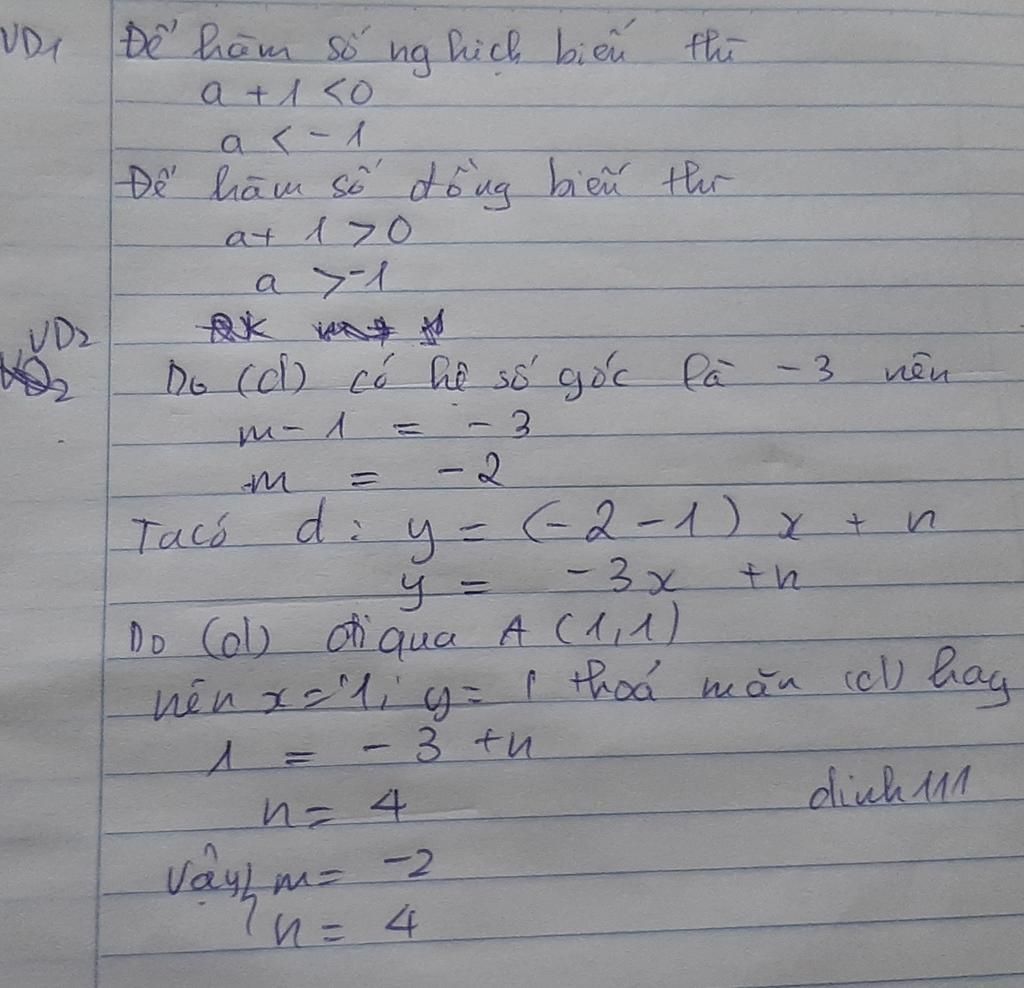 VD1 Để hàm số nghịch biến thì
a + 1 < 0
a < - 1
Để hàm số đồng biến thì
a + 1 > 0
a > -1
VD2
Do (d) có hệ số góc là - 3 nên
m - 1 = - 3
m = - 2
Ta có d : y = (- 2 - 1) x + n
y = - 3x + n
Do (d) đi qua A (1,1)
nên x = 1; y = 1 thoả mãn (d) hay
1 = - 3 + n
n = 4
dinh111
Vậy { m = -2
n = 4